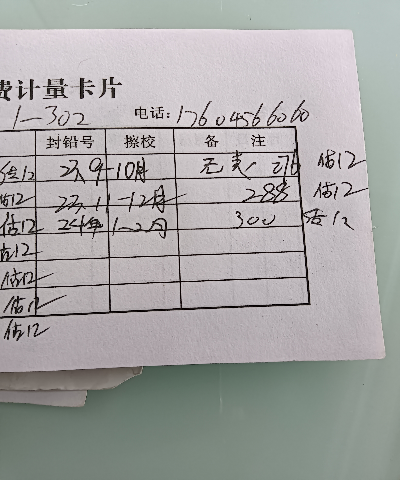 费计量卡片
1-302 电话: 17604566060
封铅号 擦校 备 注
估12 23.9-10月 无表 276 估12
估12 23.11-12月 288 估12
估12 24年1-2月 300 估12
估12
估12
估12
估12